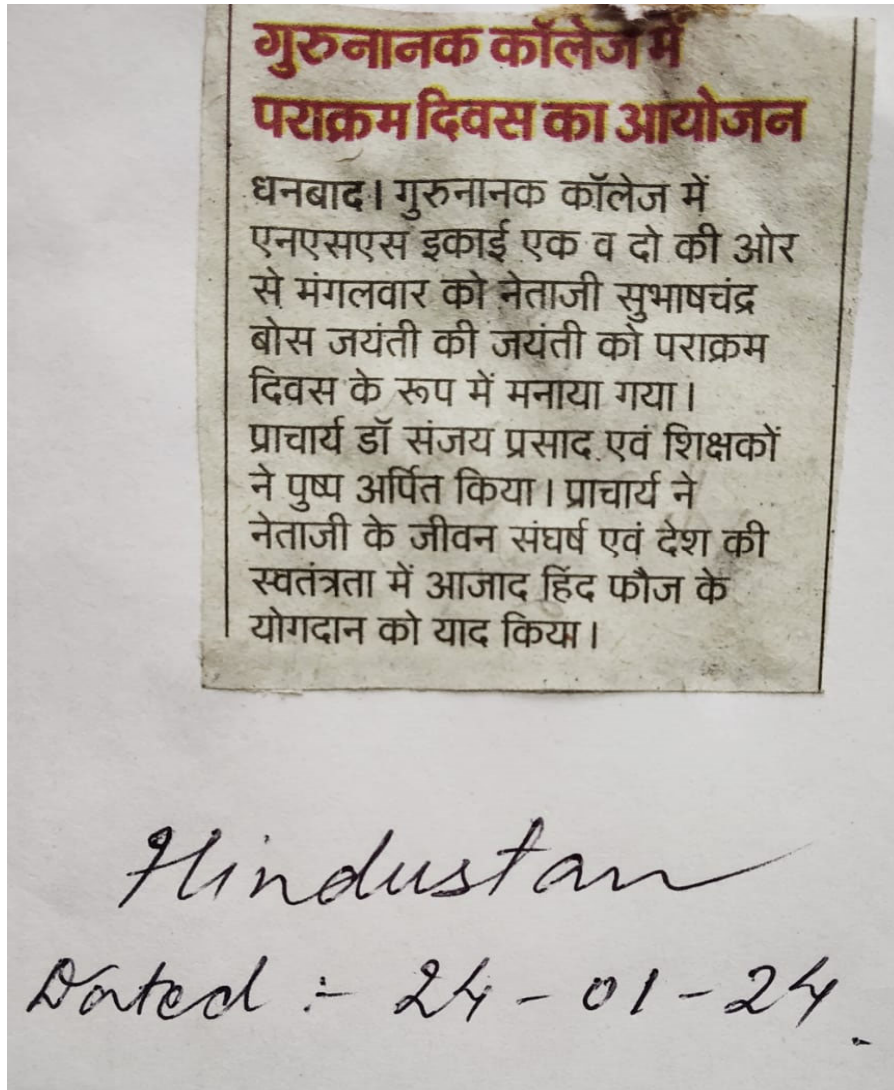 गुरुनानक कॉलेज में
पराक्रम दिवस का आयोजन
धनबाद। गुरुनानक कॉलेज में
एनएसएस इकाई एक व दो की ओर
से मंगलवार को नेताजी सुभाषचंद्र
बोस जयंती की जयंती को पराक्रम
दिवस के रूप में मनाया गया।
प्राचार्य डॉ संजय प्रसाद एवं शिक्षकों
ने पुष्प अर्पित किया। प्राचार्य ने
नेताजी के जीवन संघर्ष एवं देश की
स्वतंत्रता में आजाद हिंद फौज के
योगदान को याद किया।
Hindustan
Dated :- 24-01-24.